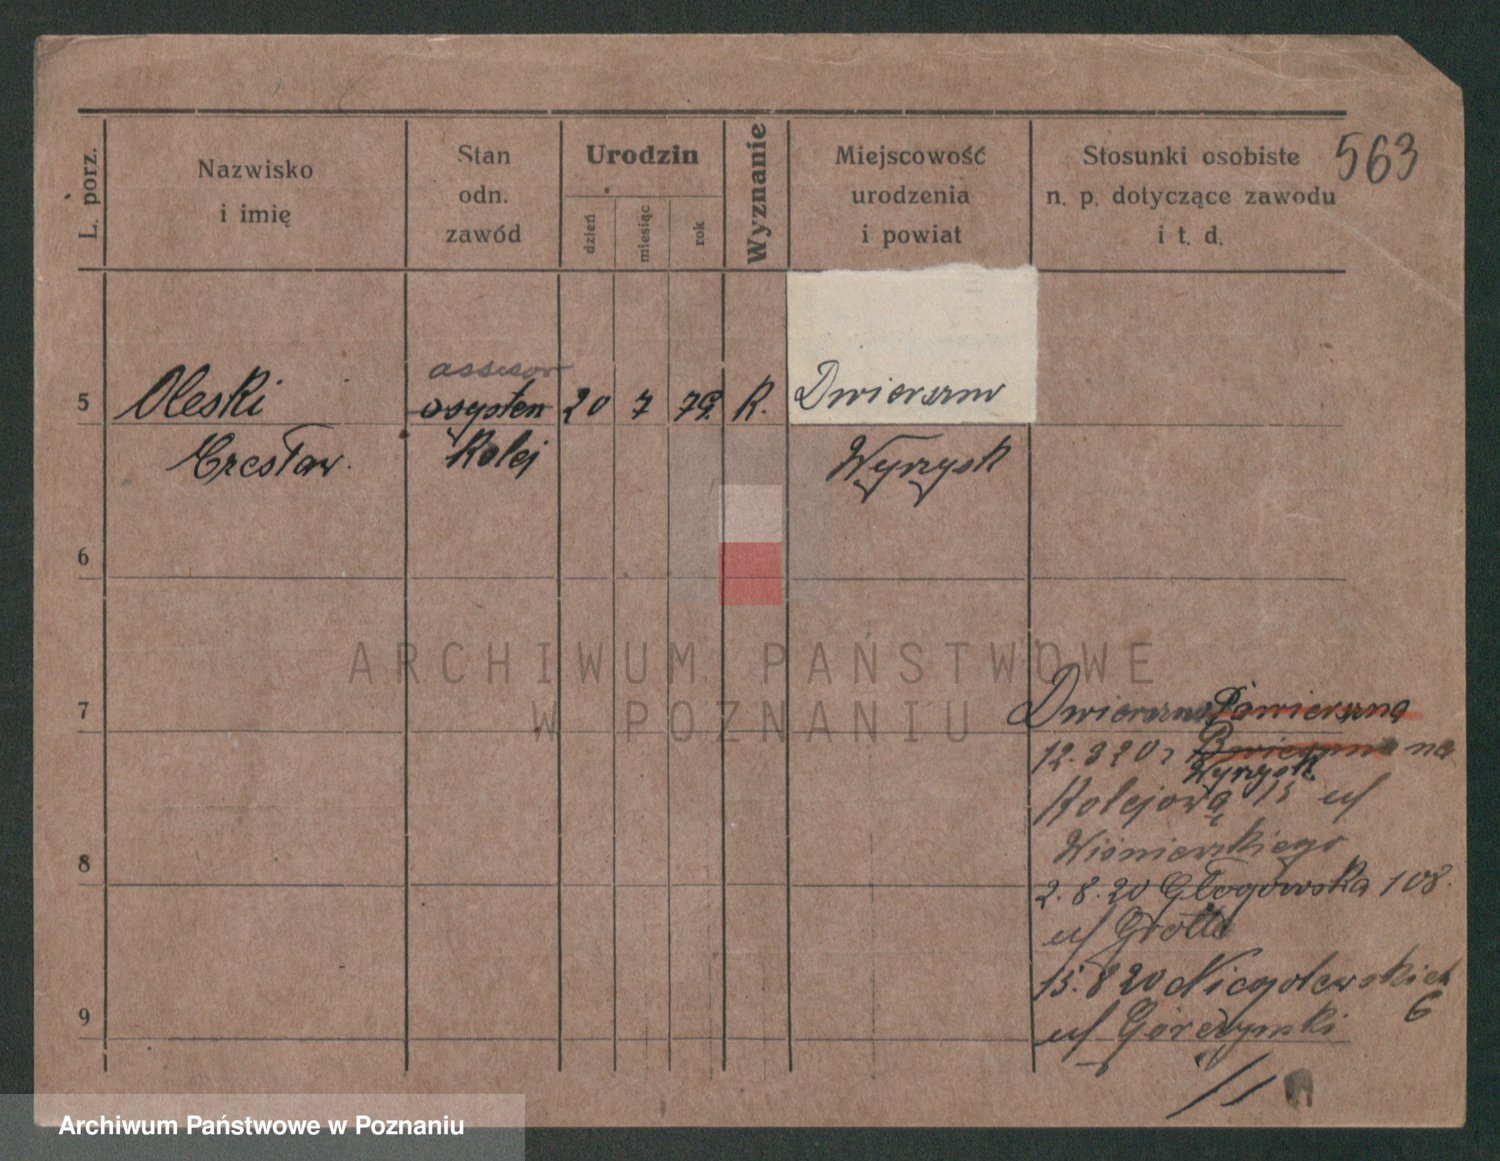 563
L. porz.
Nazwisko
i imię
Stan
odn.
zawód
Urodzin
dzień
miesiąc
rok
Wyznanie
Miejscowość
urodzenia
i powiat
Stosunki osobiste
n. p. dotyczące zawodu
i t. d.
assesor
5 Oleski asysten 20 7 79. R. Dwierzno
Czesław. Kolej Wyrzysk
6
ARCHIWUM PAŃSTWOWE
W POZNANIU
7 Dwierzno
12.3 20 r na
Wyrzysk.
Kolejową 15 u/
Wiśniewskiego
8
2.8.20 Głogowska 108.
u/ Grotte
15.8 20 Niegolewskich
6
9
u/ Górczynski
Archiwum Państwowe w Poznaniu